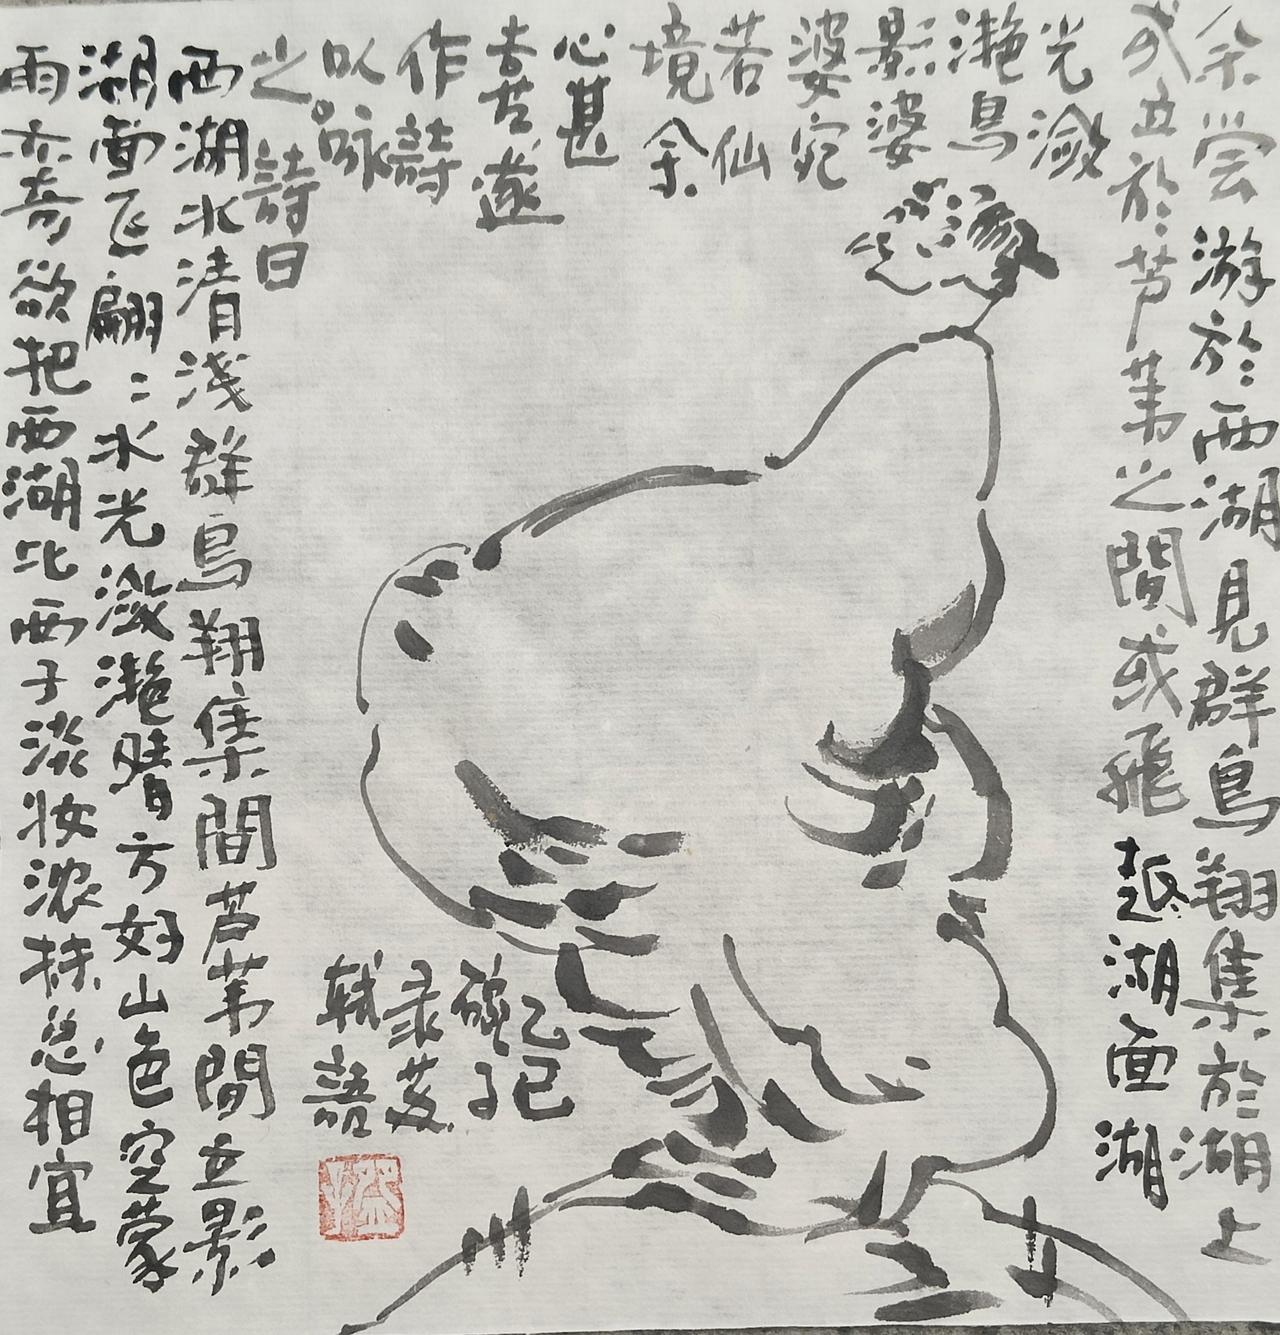 余尝游於西湖見群鳥翔集於湖上
或立於芦苇之間或飛越湖面湖
光潋
滟鳥
影婆
婆宛
若仙
境余
心甚
去甚遂
作詩
以咏
之詩曰
西湖水清浅群鳥翔集間芦苇間立影
湖面飞翩：水光潋滟晴方好山色空蒙
雨亦奇欲把西湖比西子淡妆浓抹总相宜
乙巳
子
录
軾語